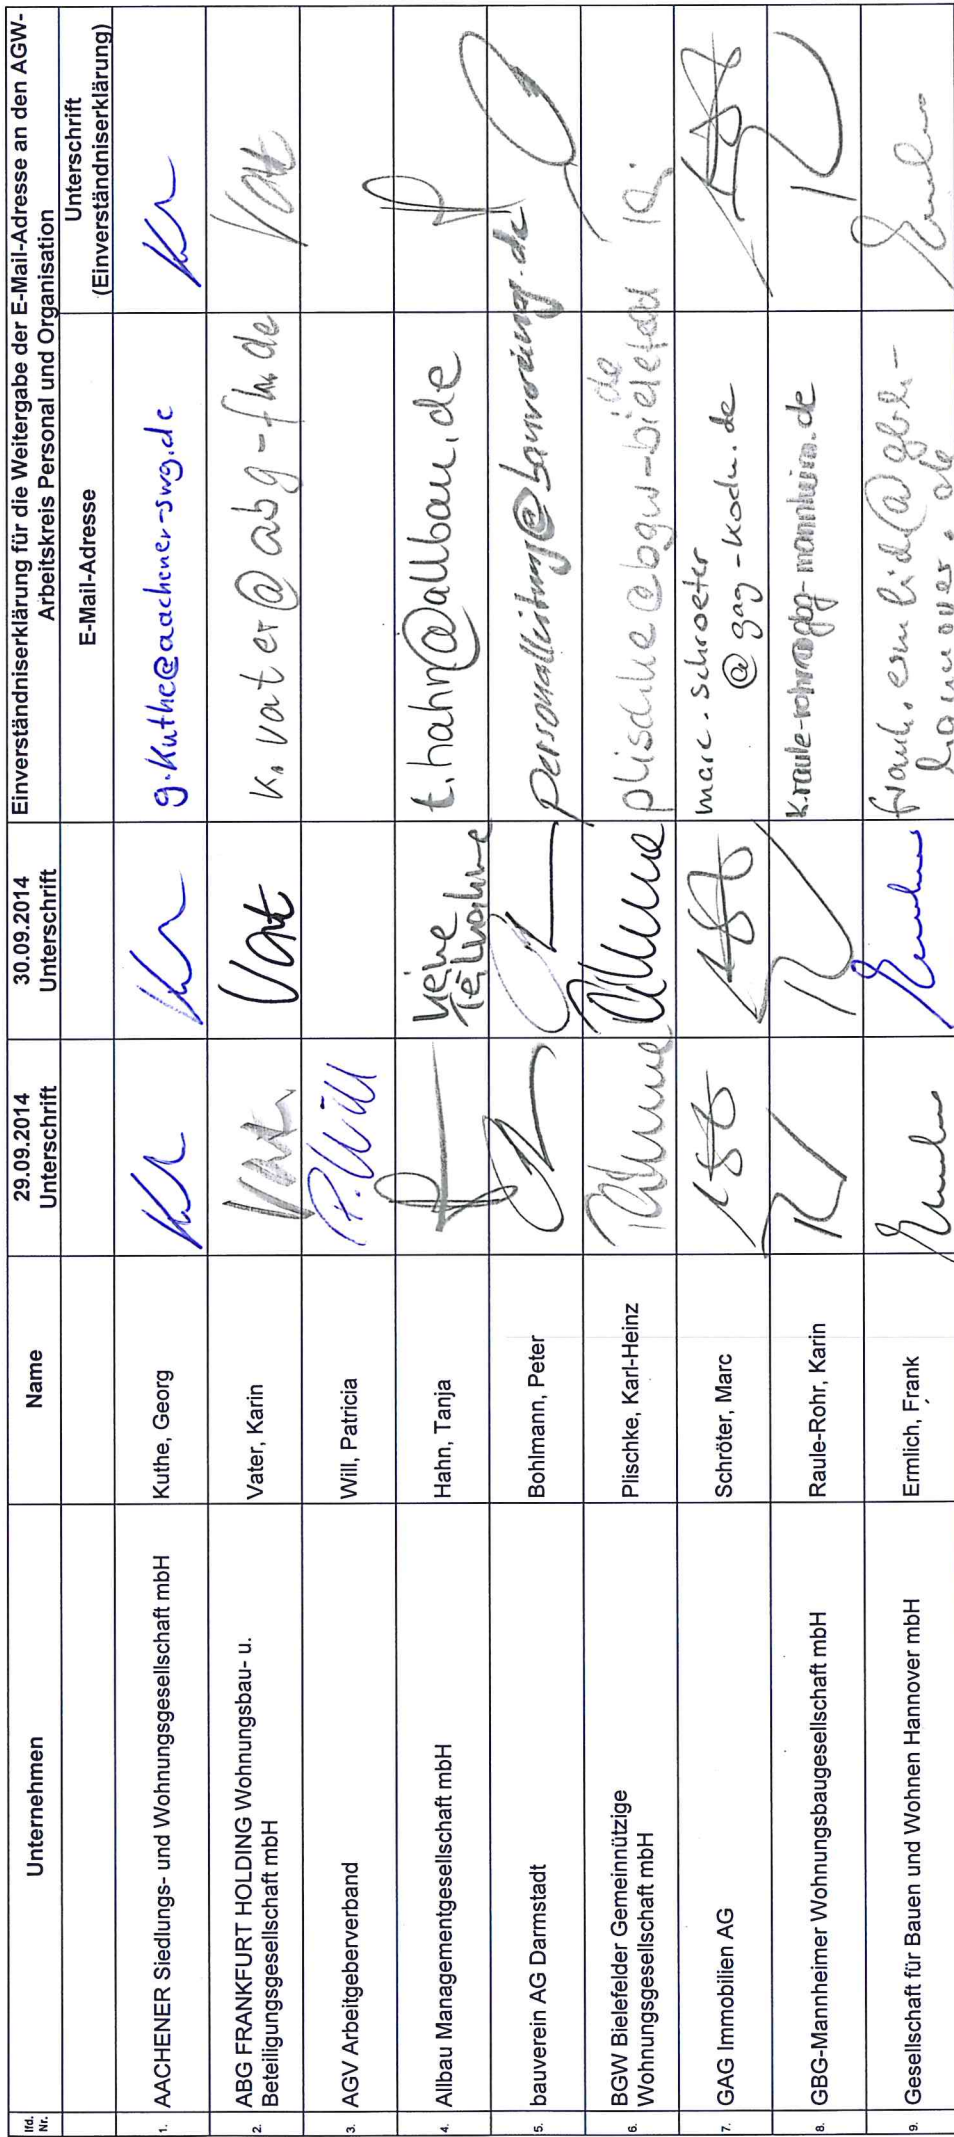 lfd. Nr.
Unternehmen
Name
29.09.2014
Unterschrift
30.09.2014
Unterschrift
Einverständniserklärung für die Weitergabe der E-Mail-Adresse an den AGW-
Arbeitskreis Personal und Organisation
E-Mail-Adresse
Unterschrift
(Einverständniserklärung)
1.
AACHENER Siedlungs- und Wohnungsgesellschaft mbH
Kuthe, Georg
g.Kuthe@aachener-swg.de
2.
ABG FRANKFURT HOLDING Wohnungsbau- u.
Beteiligungsgesellschaft mbH
Vater, Karin
Vat
k.vater@abg-fh.de
Vat
3.
AGV Arbeitgeberverband
Will, Patricia
P. Will
4.
Allbau Managementgesellschaft mbH
Hahn, Tanja
keine
Teilnahme
t.hahn@allbau.de
5.
bauverein AG Darmstadt
Bohlmann, Peter
personalleitung@bauvereinag.de
6.
BGW Bielefelder Gemeinnützige
Wohnungsgesellschaft mbH
Plischke, Karl-Heinz
plischke@bgw-bielefeld
.de
7.
GAG Immobilien AG
Schröter, Marc
marc.schroeter
@gag-koeln.de
8.
GBG-Mannheimer Wohnungsbaugesellschaft mbH
Raule-Rohr, Karin
k.raule-rohr@gbg-mannheim.de
9.
Gesellschaft für Bauen und Wohnen Hannover mbH
Ermlich, Frank
frank.ermlich@gbh-
hannover.de